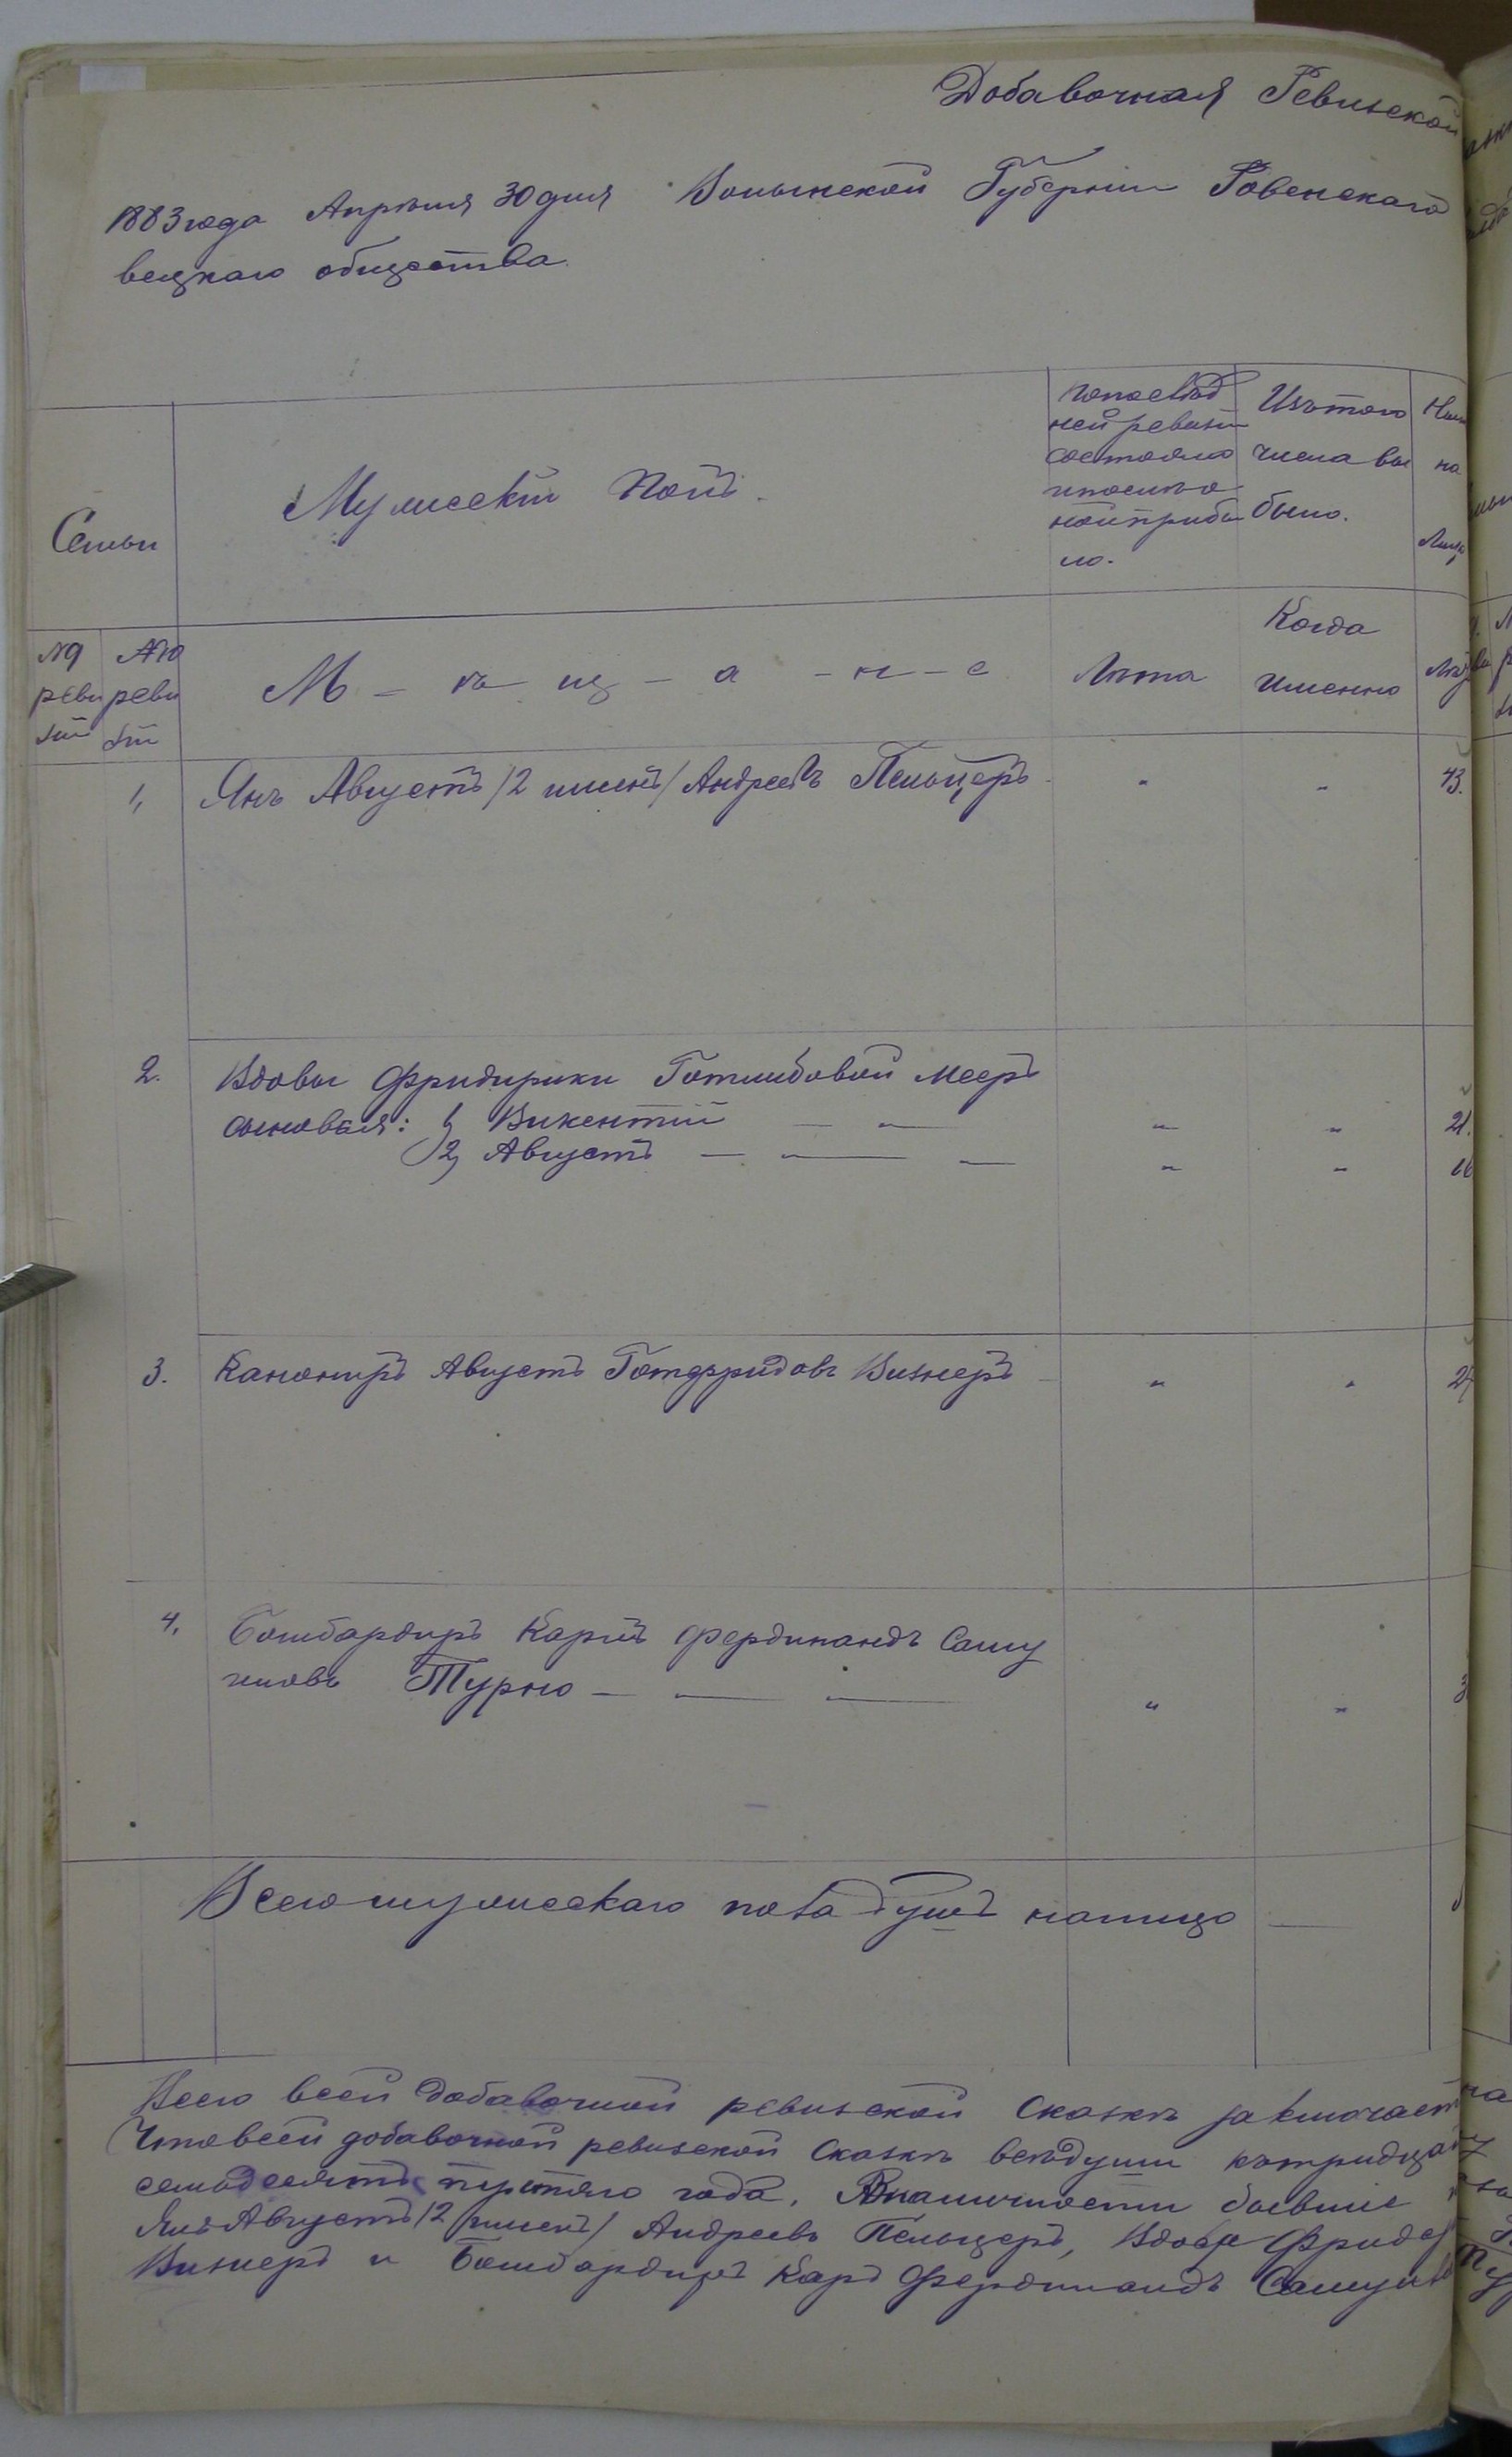 Добавочная Ревизской
1883 года Апрѣля 30 дня Волынской Губернiи Ровенскаго
вецкаго общества.
Семьи
Мужескiй Полъ.
Попослѣд
ней ревизiи
состояло
и послѣ
ной прибы
ло.
Изъ того
числа вы
было.
на
№ 9
реви
зiи
№ 10
реви
зiи
М - ѣ - щ - а - н - е
Лѣта
Когда
Именно
1, Янъ Августъ /2 именъ/ Андреевъ Пельцеръ - " " 43.
2. Вдовы Фридирики Готлибовой Мееръ
сыновья: 1, Викентiй — " — " " 21.
2, Августъ — " — " " 16
3. Канониръ Августъ Готфридовъ Визнеръ — " " 27
4, Бомбардиръ Карлъ Фердинандъ Саму
иловъ Турно — " — " " 3
Всего мужескаго пола душъ налицо —
Всего всей добавочной ревизской сказкѣ заключает
Что всей добавочной ревизской сказкѣ всѣ души къ тридцат
семьдесятъ третьяго года. В наличности бывшiе
Янъ Августъ /2 именъ/ Андреевъ Пельцеръ, Вдова Фриде
Визнеръ и Бомбардиръ Карлъ Фердинандъ Самуило